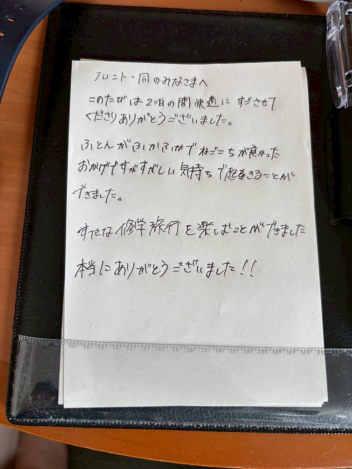 フロント一同のみなさまへ
このたびは2泊の間快適にすごさせて
くださりありがとうございました。
ふとんがふかふかでねごこちが良かった
おかげですがすがしい気持ちで起きることが
できました。
すてきな修学旅行を楽しむことができました
本当にありがとうございました!!